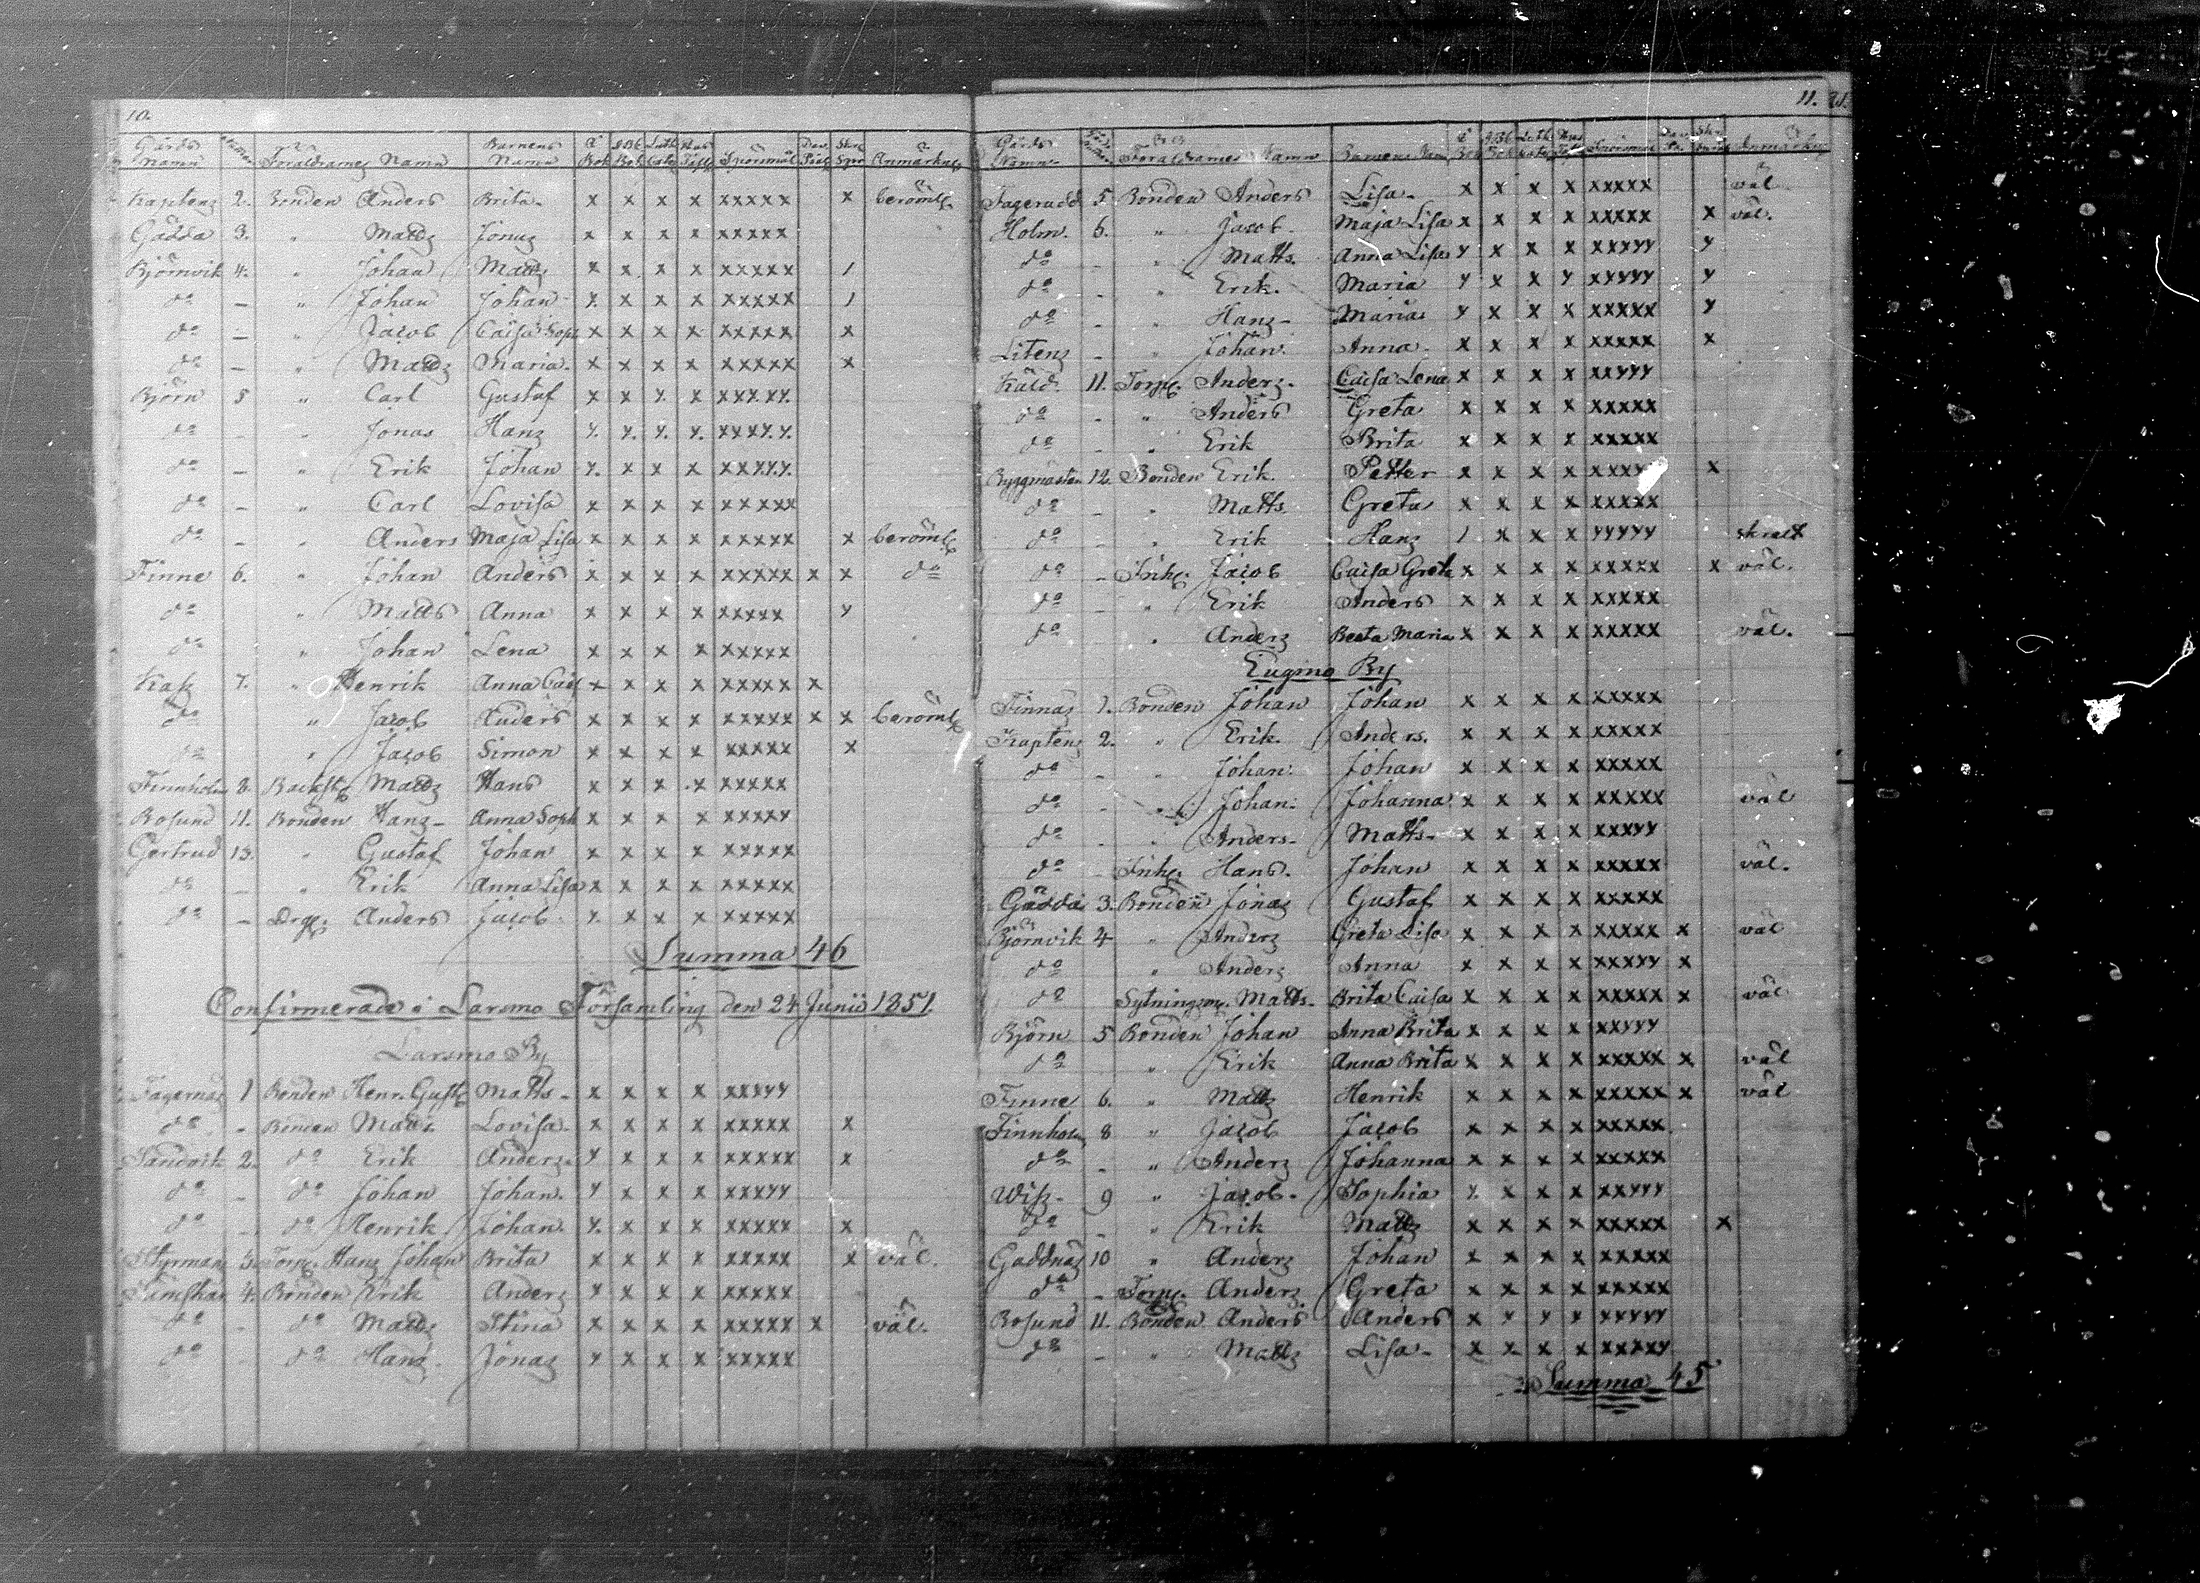 10.
Gårds Namn Föräldrarnes Namn Barnens Namn A Bok ABC Bok Luth. Cate. Hus Tafl. Spörsmål Dav. Psal. Skr. Spr. Anmärkn.
Kaptens 2. Bonden Anders Brita x x x x xxxxx x berömt.
Gädda 3. " Matts Jonas x x x x xxxxx
Björnvik 4. " Johan Matts x x x x xxxxx /
do — " Johan Johan y. x x x xxxxx /
do — " Jacob Caisa Soph x x x x xxxxx x
do — " Matts Maria. x x x x xxxxx x
Björn 5 " Carl Gustaf x x y. x xxy.xy.
do — " Jonas Hans y. y. y. y. xxxy.y.
do — " Erik Johan y. x x x xxy.y.y.
do — " Carl Lovisa x x x x xxxxx
do — " Anders Maja Lisa x x x x xxxxx x berömt.
Finne 6. " Johan Anders x x x x xxxxx x x do
do " Matts Anna x x x x xxxxx y
do " Johan Lena x x x x xxxxx
Kass 7. " Henrik Anna Cais x x x x xxxxx x
do " Jacob Anders x x x x xxxxx x x berömt.
do " Jacob Simon x x x x xxxxx x
Finnholm 8. Backst. Matts Hans x x x x xxxxx
Bosund 11. Bonden Hans — Anna Soph x x x x xxxxy
Gertrud 13. " Gustaf Johan x x x x xxxxx
do — " Erik Anna Lisa x x x x xxxxx
do — Drg. Anders Jacob y. x x x xxxxx
Summa 46
Confirmerade i Larsmo Församling den 24 Junii 1851.
Larsmo By
Fagernäs 1 Bonden Henr. Gust. Matts — x x x x xxxyy
do - Bonden Matts Lovisa. x x x x xxxxx x
Sandvik 2. do Erik Anders. y x x x xxxxx x
do - do Johan Johan. y x x x xxxyy
do - do Henrik Johan. y. x x x xxxxx x
Styrmans 3. Torp. Hans Johan Brita x x x x xxxxx x väl.
4. Bonden Erik Anders y x x x xxxxx
do - do Matts Stina x x x x xxxxx x väl.
do - do Hans. Jonas y x x x xxxxx
11.
Gårds Namn. Föräldrarnes Namn Barnens Nam A Bok ABC Bok Luth. Cate. Hus Taf. Spörsmål Anmärkn.
Fageradd 5 Bonden Anders Lisa - x x x x xxxxx väl
Holm. 6. " Jacob. Maja Lisa x x x x xxxxx x väl.
do - " Matts. Anna Lisa y x x x xxxyy y
do - " Erik. Maria y x x y xxyyy y
do - " Hans - Maria y x x x xxxxx y
Litens - " Johan. Anna. x x x x xxxxx x
Käld. 11. Torp. Anders. Caisa Lena x x x x xxyyy
do - " Anders Greta x x x x xxxxx
do - " Erik Brita x x x x xxxxx
Byggmästar 12. Bonden Erik. Petter x x x x xxxy x
do - " Matts. Greta x x x x xxxxx
do - " Erik Hans / x x x yyyyy skralt
do - Inh. Jacob Caisa Greta x x x x xxxxx x väl.
do - " Erik Anders x x x x xxxxx
do - " Anders Beata Maria x x x x xxxxx väl.
Eugmo By
Finnas 1. Bonden Johan Johan x x x x xxxxx
Kaptens 2. " Erik. Anders. x x x x xxxxx
do - " Johan. Johan x x x x xxxxx
do - " Johan. Johanna x x x x xxxxx väl
do - " Anders - Matts - x x x x xxxyy
do - Inh. Hans. Johan x x x x xxxxx väl.
Gädda 3. Bonden Jonas Gustaf x x x x xxxxx
Björnvik 4 " Anders Greta Lisa x x x x xxxxx x väl
do " Anders Anna x x x x xxxyy x
do Sytningsm. Matts - Brita Caisa x x x x xxxxx x väl
Björn 5 Bonden Johan Anna Brita x x x x xxyyy
do " Erik Anna Brita x x x x xxxxx x väl
Finne 6. " Matts Henrik x x x x xxxxx x väl
Finnholm 8 " Jacob Jacob x x x x xxxxx.
do - " Anders Johanna x x x x xxxxx
Wiss - 9 " Jacob - Sophia y. x x x xxyyy
do - " Erik Matts x x x x xxxxx x
Gäddnäs 10 " Anders Johan x x x x xxxxx
do - Torp. Anders Greta x x x x xxxxx
Bosund 11. Bonden Anders Anders x x y x xxyyy
do - " Matts Lisa - x x x x xxxxy
Summa 45